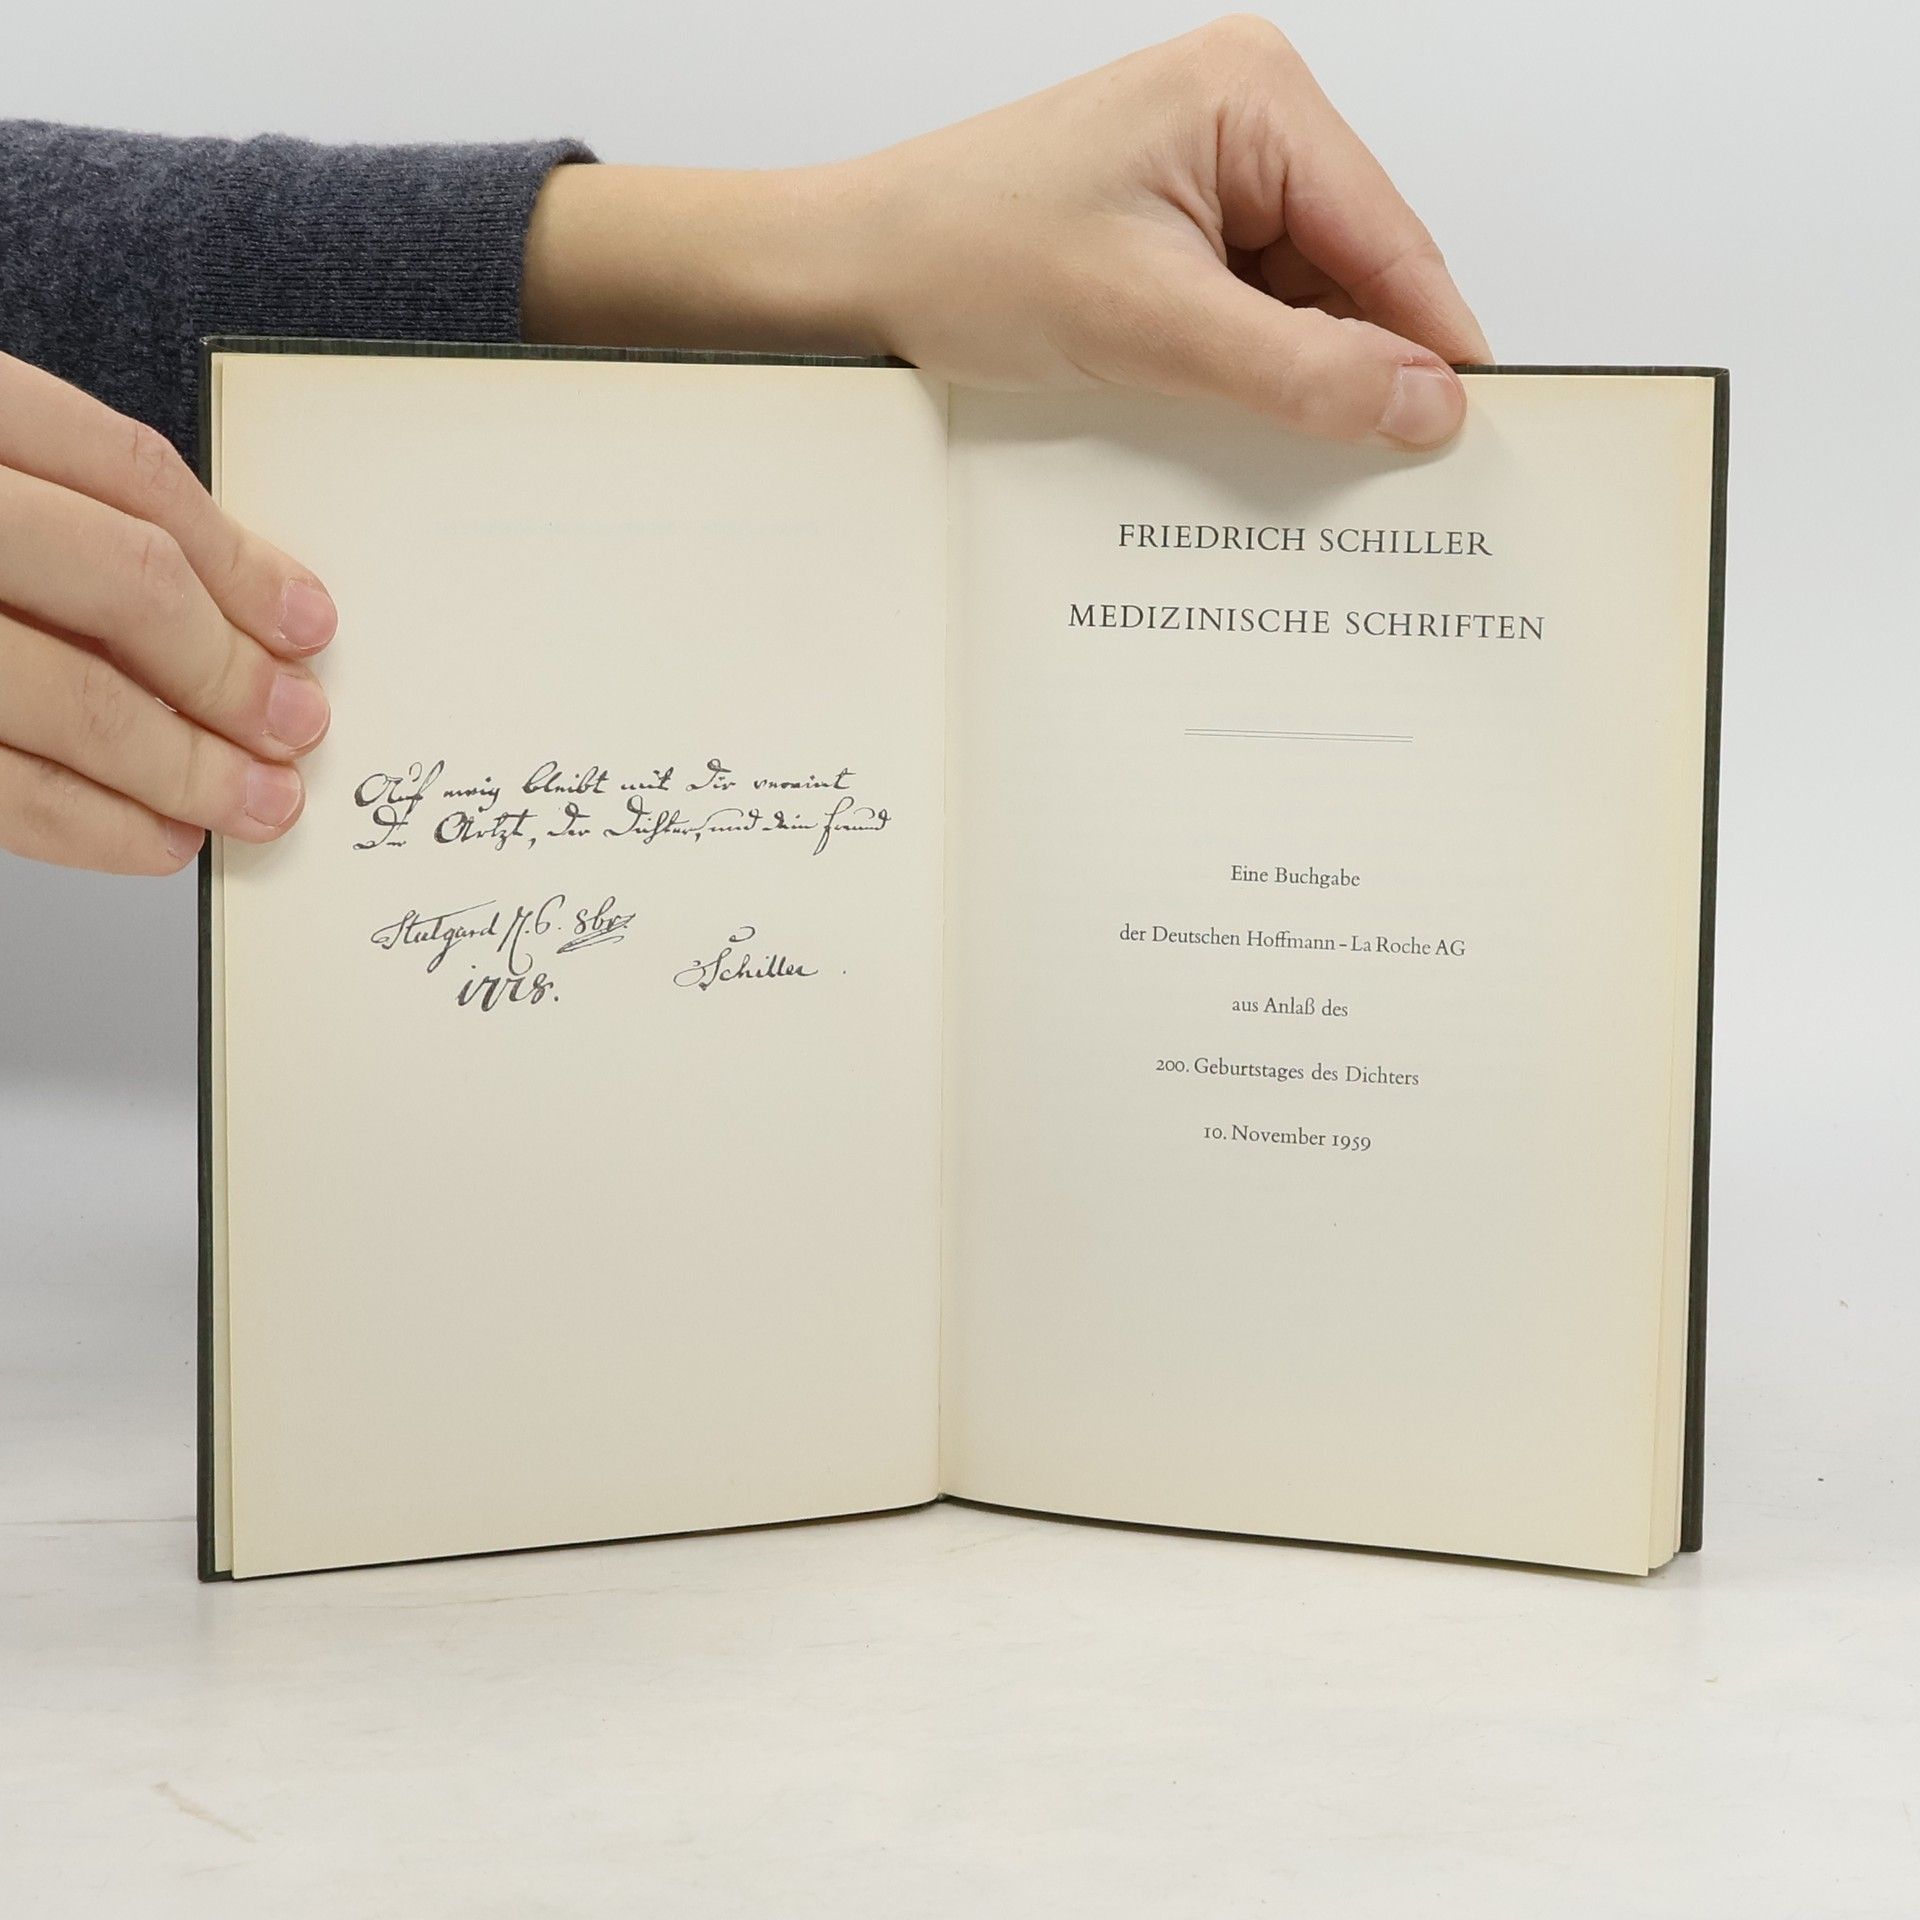 Auf ewig bleibt mit Dir vereint
Der Artzt, der Dichter, und dein Freund
Stutgard 6. 8br.
1778.
Schiller
FRIEDRICH SCHILLER
MEDIZINISCHE SCHRIFTEN
Eine Buchgabe
der Deutschen Hoffmann – La Roche AG
aus Anlaß des
200. Geburtstages des Dichters
10. November 1959